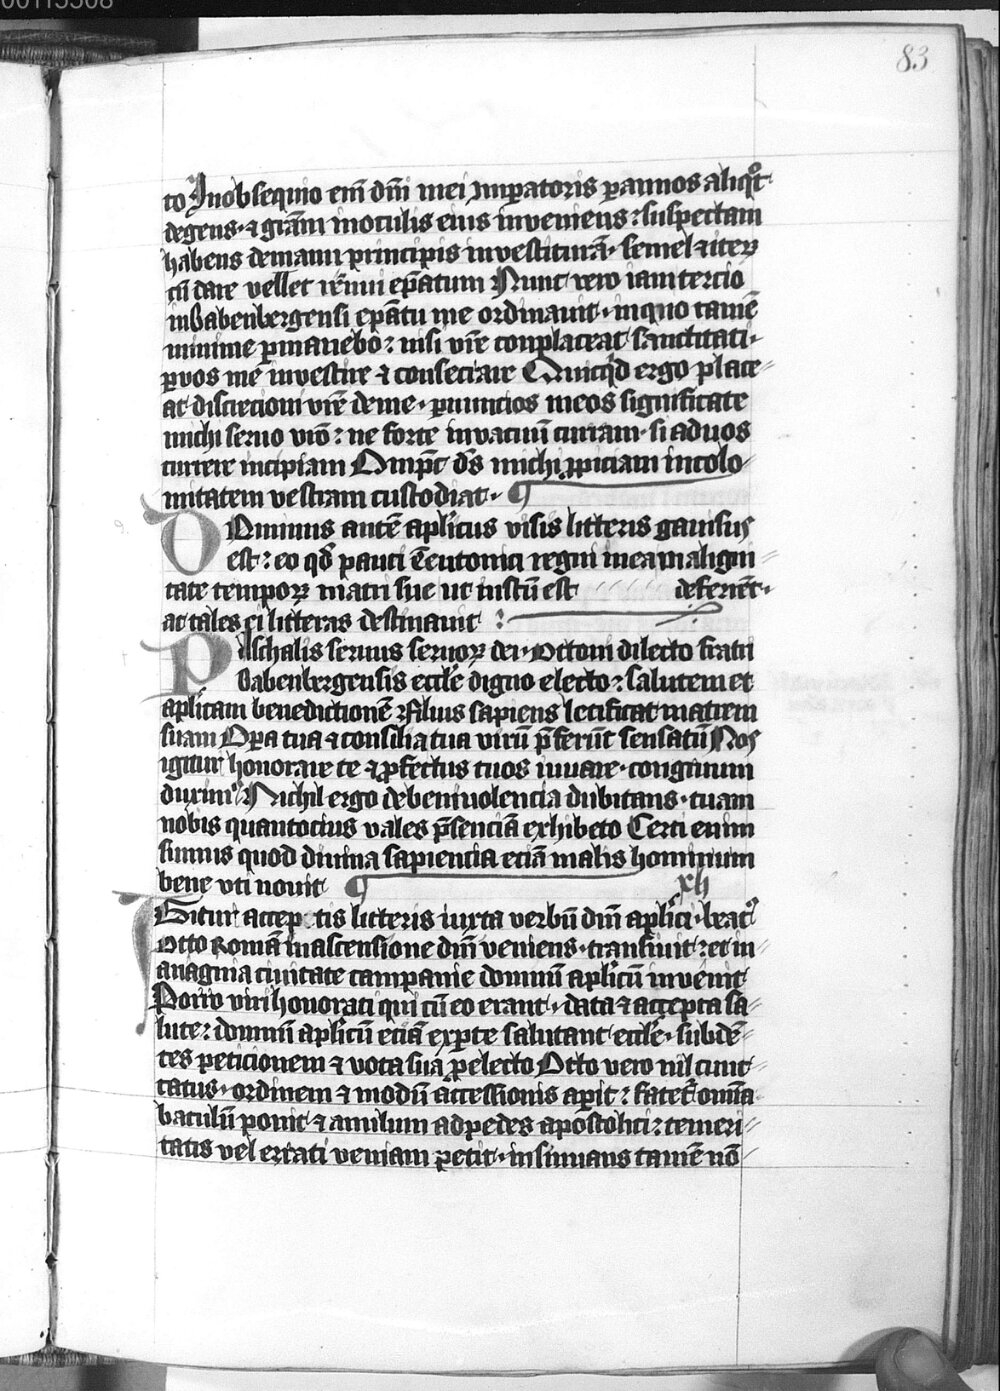 00115508
83
to Jn obsequio em̄ dn̄i mei jmꝑatoris ꝑ annos aliqͦt
degens · ⁊ grām in oculis eius inveniens : suspectam
habens de manu principis investiturā · semel ⁊ iteꝝ
cū dare vellet rēnui ep̄atum Nunc vero iam tercio
in Babenbergensi ep̄atu me ordinavit · in quo tamē
minime ꝑmanebo : nisi vr̄e conplaceat sanctitati ·
ꝑ vos me investire ⁊ consecrare Quicq̇d ergo place
at discrecioni vr̄e de me · ꝑ nuncios meos significate
michi servo vr̄o : ne forte in vacuū curram · si ad vos
currere incipiam Omp̄t̄ ds̄ michi ꝓpiciam incolo
mitatem vestram custodiat ·
Ominus autē aplīcus visis litteris gavisus
est : eo qd̄ pauci Teutonici regni in ea maligni
tate tempoꝝ matri sue ut iustū est deferrēt ·
ac tales ei litteras destinavit :
Paschalis servus servoꝝ dei · Ottoni dilecto fratri
Babenbergensis eccl̄e digno electo : salutem et
aplīcam benedictionē : Filius sapiens letificat matrem
suam Oꝑa tua ⁊ consilia tua virū p̄ferūt sensatū Nos
igitur honorare te ⁊ ꝓfectus tuos iuvare · congruum
duximꝰ Nichil ergo de benivolencia dubitans · tuam
nobis quantocius vales p̄senciā exhibeto Certi enim
sumus quod divina sapiencia eciā malis hominum
bene uti novit
xii
IGitur acceptis litteris iuxta verbū dn̄i aplīci · beatꝰ
Otto Romā in ascensione dn̄i veniens · transivit : et in
anagnia civitate campanie domnū aplīcū invenit
Porro viri honorati qui cū eo erant · data ⁊ accepta sa
lute : domnū aplīcū eciā ex ꝑte salutant eccl̄e · subdē
tes peticionem ⁊ vota sua ꝑ electo Otto vero nil cunc
tatus · ordinem ⁊ modū accessionis aꝑit : fatet᷑ omīa
baculū ponit ⁊ anulum ad pedes apostolici : temeri
tatis vel errati veniam petit · insinuans tamē nō